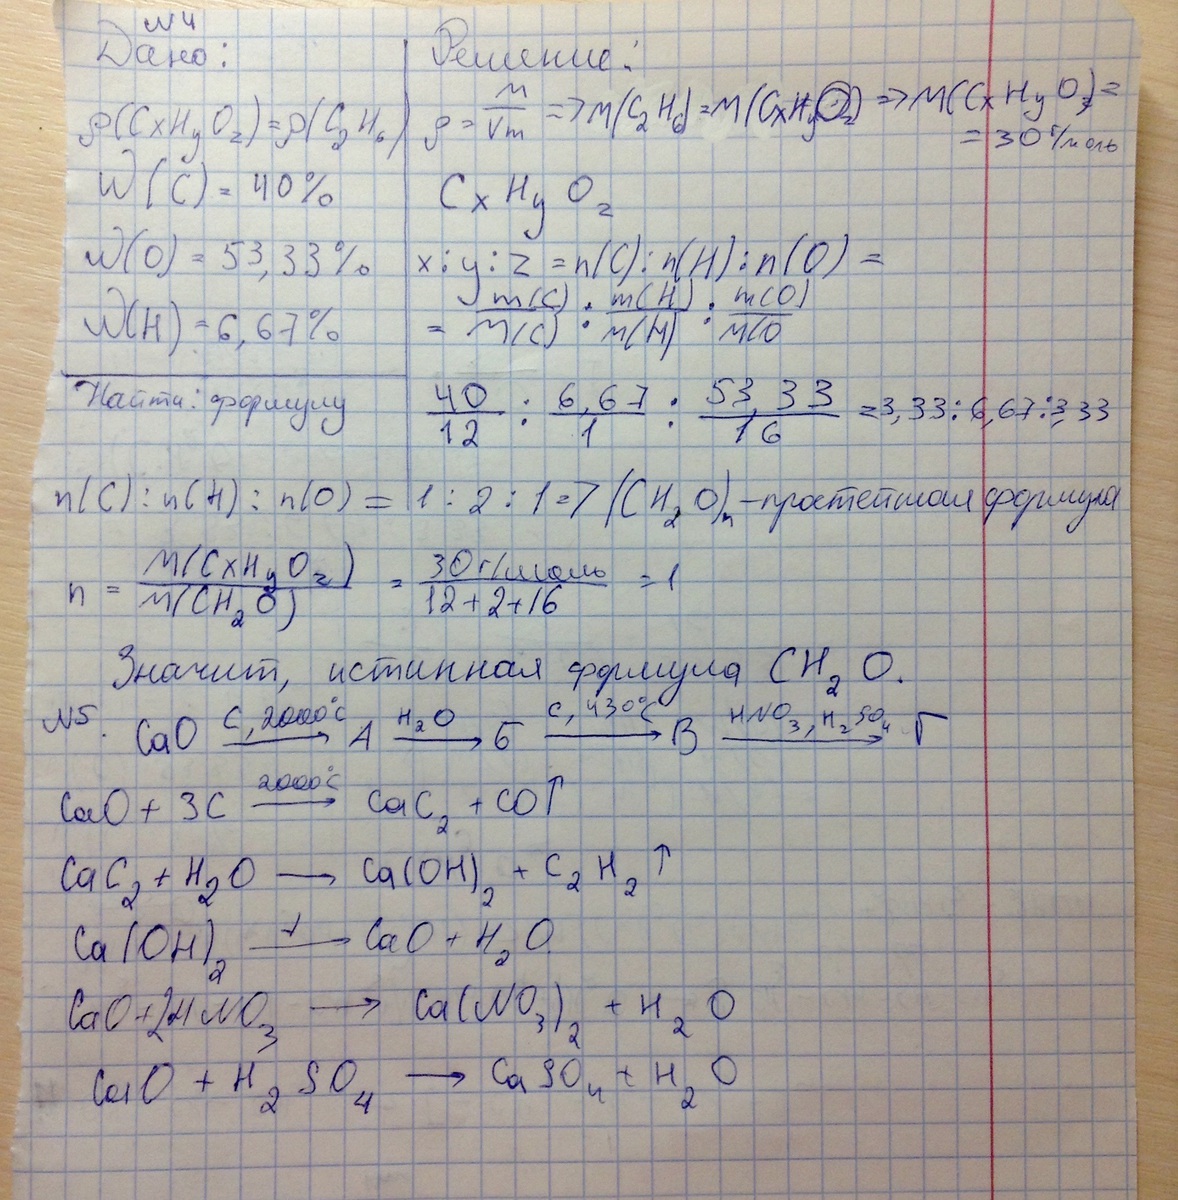 №4
Дано:
ρ(CxHyOz)=ρ(C2H6)
W(C) = 40%
W(O) = 53,33%
W(H) = 6,67%
Найти: формулу
Решение:
ρ = M/Vm => M(C2H6) = M(CxHyOz) => M(CxHyOz) =
= 30 г/моль
CxHyOz
x : y : z = n(C) : n(H) : n(O) =
= m(C)/M(C) : m(H)/M(H) : m(O)/M(O
40/12 : 6,67/1 : 53,33/16 = 3,33 : 6,67 : 3,33
n(C) : n(H) : n(O) = 1 : 2 : 1 => (CH2O)n - простейшая формула
n = M(CxHyOz)/M(CH2O) = 30 г/моль/12+2+16 = 1
Значит, истинная формула CH2O.
№5. CaO —C, 2000°C→ А —H2O→ Б —C, 430°C→ В —HNO3, H2SO4→ Г
CaO + 3C —2000°C→ CaC2 + CO↑
CaC2 + H2O → Ca(OH)2 + C2H2↑
Ca(OH)2 —t→ CaO + H2O
CaO + 2HNO3 → Ca(NO3)2 + H2O
CaO + H2SO4 → CaSO4 + H2O